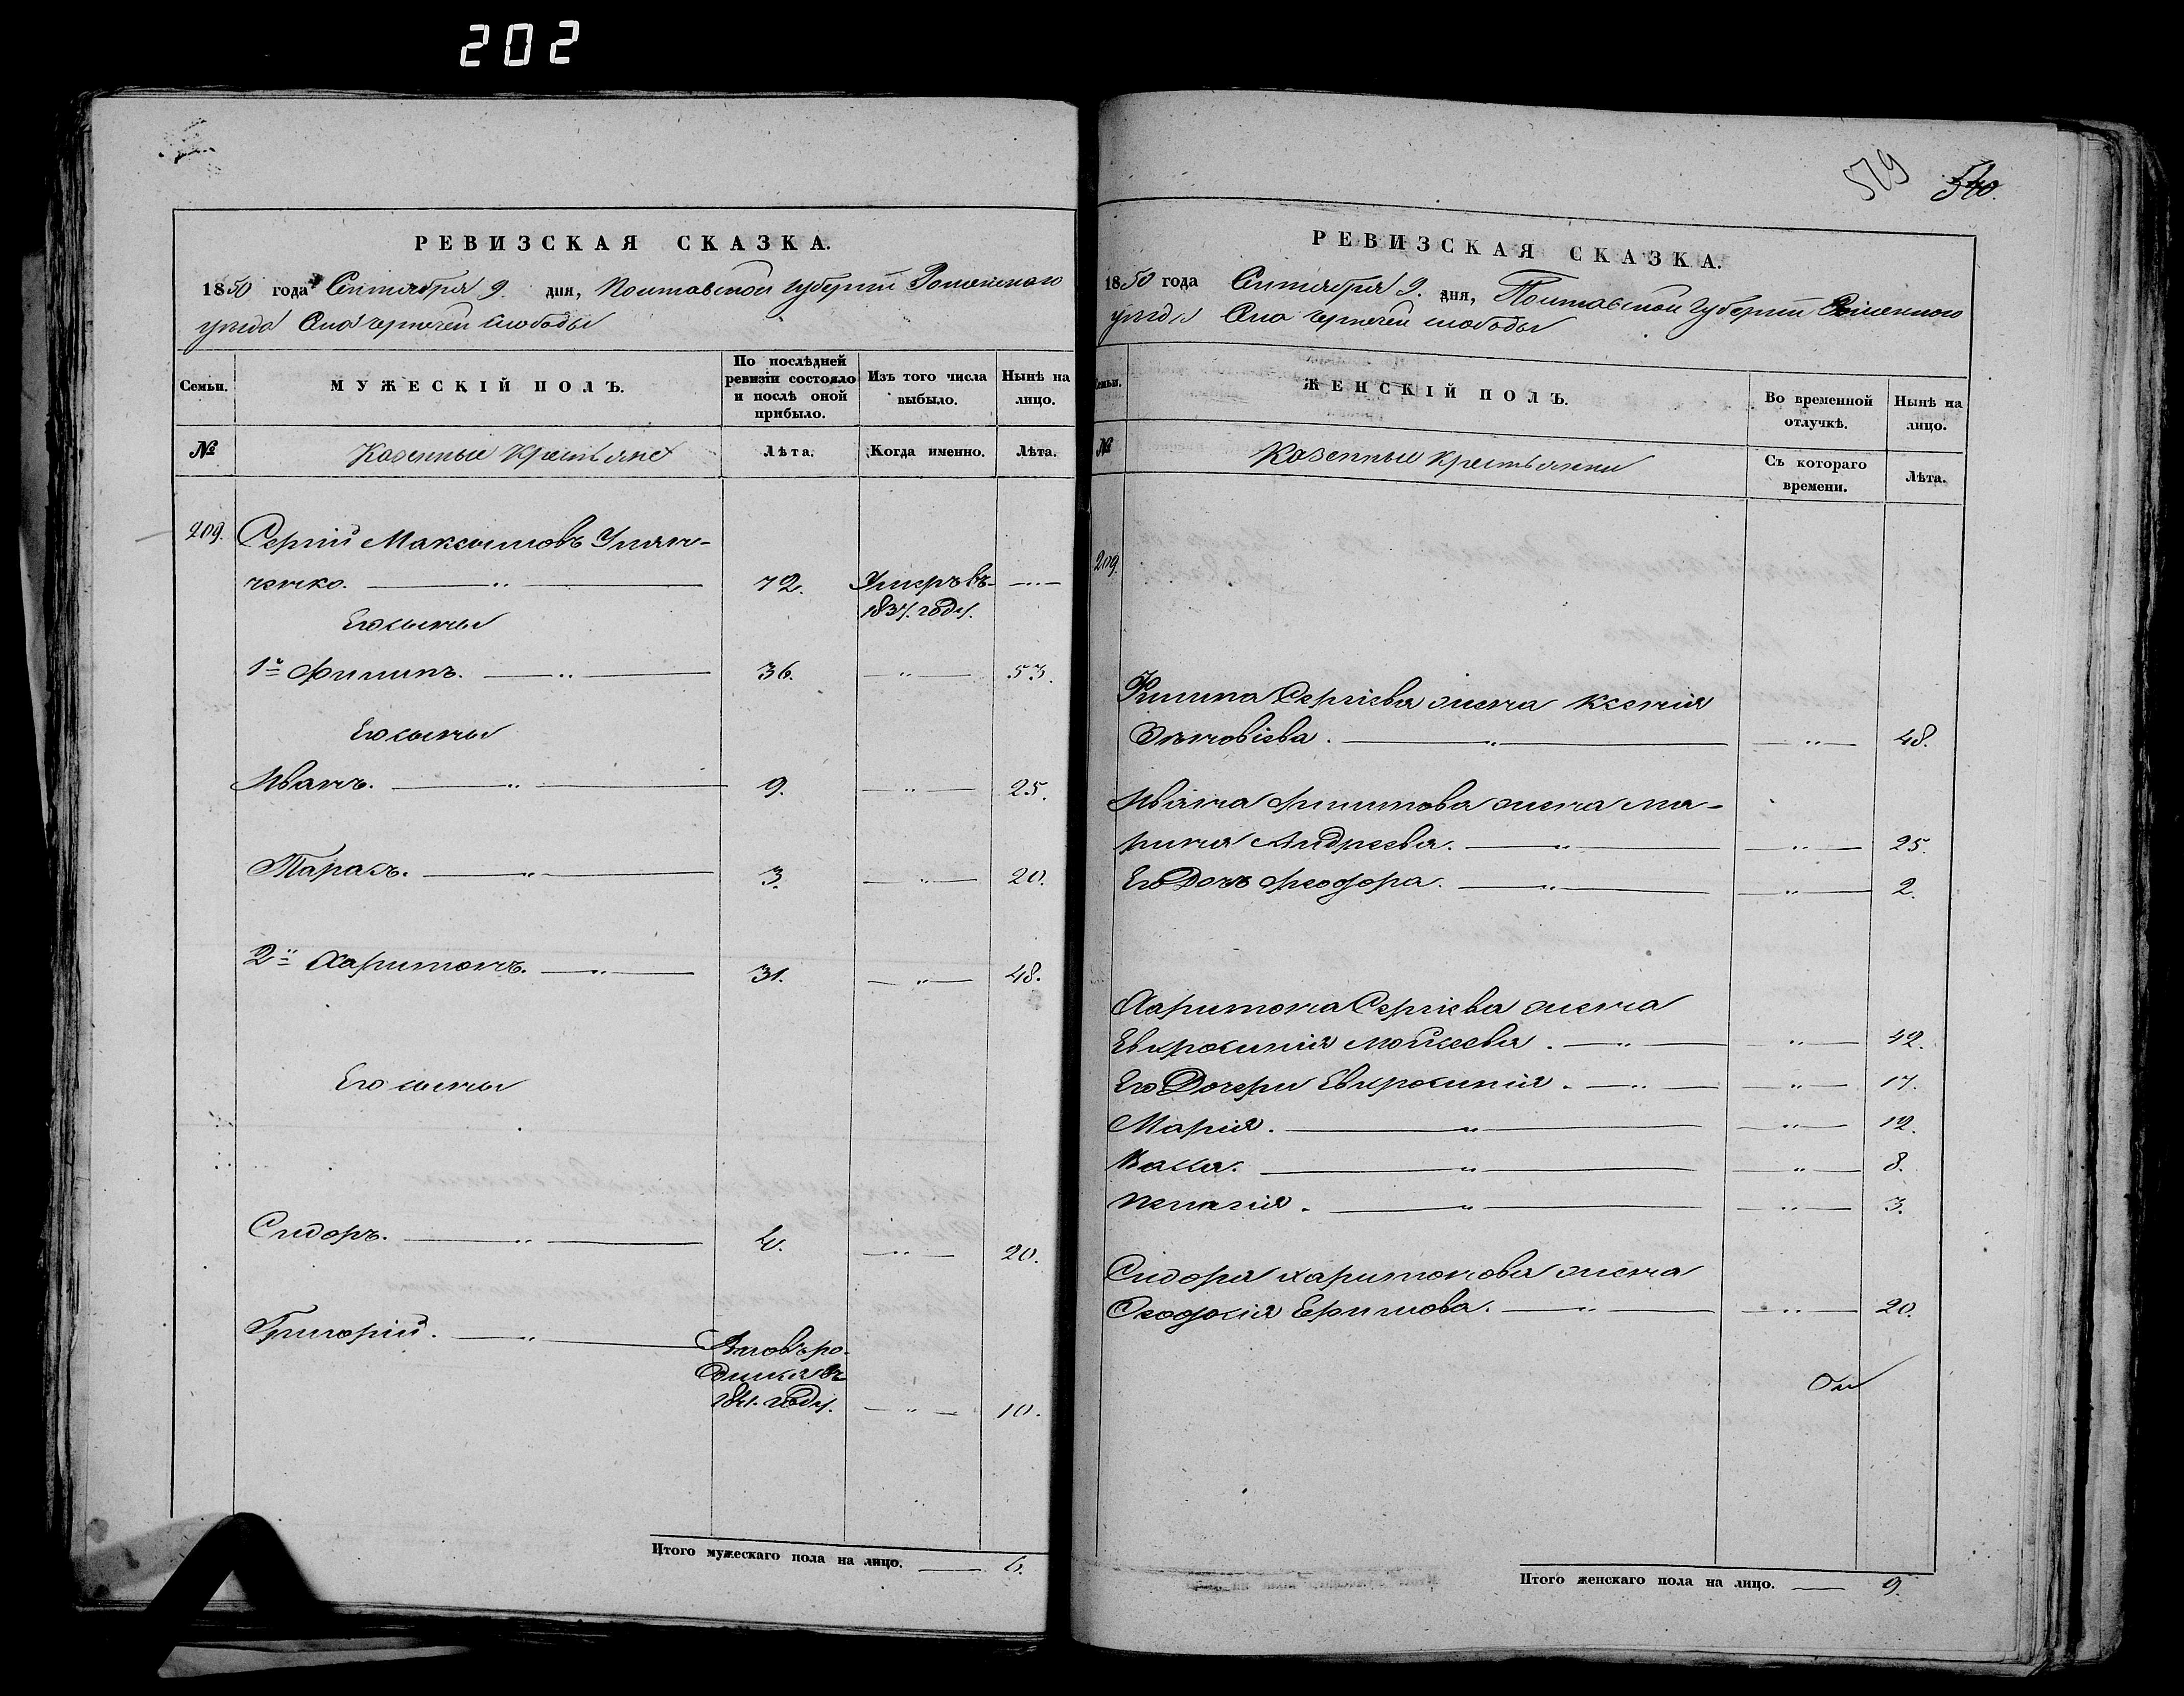 202
РЕВИЗСКАЯ СКАЗКА.
1850 года Сентября 9. дня, Полтавской губернiи Роменского
уезда Села чернечей слободы
Семьи.
МУЖЕСКIЙ ПОЛЪ.
По послѣдней ревизiи состояло и послѣ оной прибыло.
Изъ того числа выбыло.
Нынѣ на лицо.
№
Казенные Крестьяне
Лѣта.
Когда именно.
Лѣта.
209. Сергiй Максимовъ
72. Умеръ въ
1837. году.
Его сыны
1й Филипъ. 36. 53.
Его сыны
Иванъ. 9. 25.
Тарасъ. 3. 20.
2й Харитонъ. 31. 48.
Его сыны
Сидоръ. 4. 20.
Григорiй. Вновь ро-
дился въ
1841. году. 10.
Итого мужескаго пола на лицо. 6.
519 540.
РЕВИЗСКАЯ СКАЗКА.
1850 года Сентября 9. дня, Полтавской Губернiи Роменского
уезда Села чернечей слободы
Семьи.
ЖЕНСКIЙ ПОЛЪ.
Во временной отлучкѣ.
Нынѣ на лицо.
№
Казенные Крестьянки
Съ котораго времени.
Лѣта.
209.
Филипа Сергiева жена Ксенiя
Зѣновiева. 48.
Ивана Филипова жена Ма-
рина Андреева. 25.
Его Дочь Феодора. 2.
Харитона Сергiева жена
Евфросинiя Мойсеева. 42.
Его Дочери Евфросинiя. 17.
Марiя. 12.
Васса. 8.
Пелагiя. 3.
Сидора Харитонова жена
Феодосiя Ефимова. 20.
Итого женскаго пола на лицо. 9.